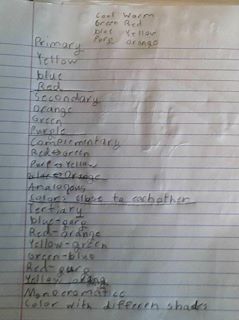 Cool Warm
Green Red
blue Yellow
Purp Orange
Primary
Yellow
blue
Red
Secondary
Orange
Green
Purple
Complementary
Red↔green
Purp↔Yellow
Blue↔Orange
Analogous
Colors close to eachother
Tertiary
blue-purp
Red-orange
Yellow-green
Green-blue
Red-purp
Yellow orang
Monocromatic
Color with different shades